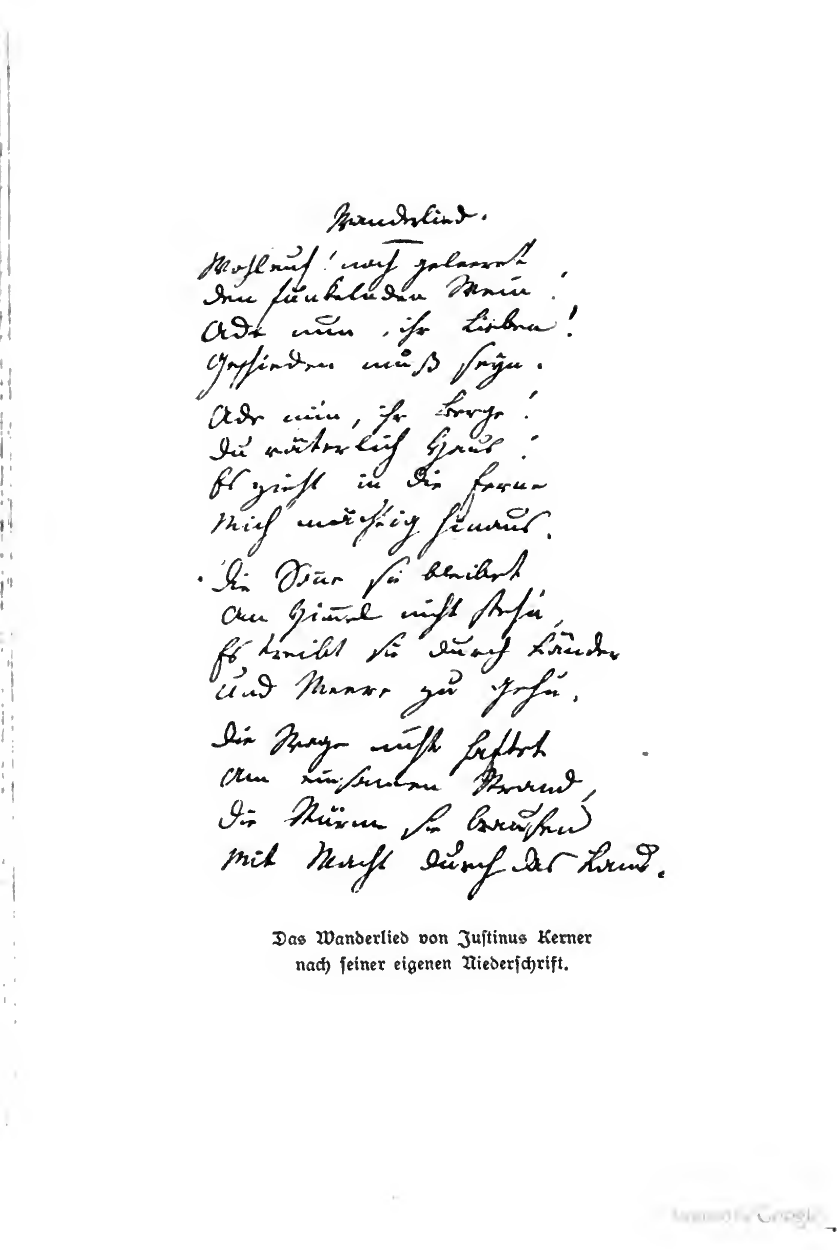 Wanderlied.
Wohlauf! noch geleeret
den funkelnden Wein!
Ade nun, ihr Lieben!
Geschieden muß seyn.
Ade nun, ihr Berge!
Du väterlich Haus!
Es zieht in die Ferne
Mich mächtig hinaus.
Die Sonne sie bleibet
Am Himmel nicht stehn,
Es treibt sie durch Länder
Und Meere zu gehn.
Die Woge nicht haftet
Am einsamen Strand,
Die Stürme sie brausen
Mit Macht durch das Land.
Das Wanderlied von Justinus Kerner
nach seiner eigenen Niederschrift.
Digitized by Google